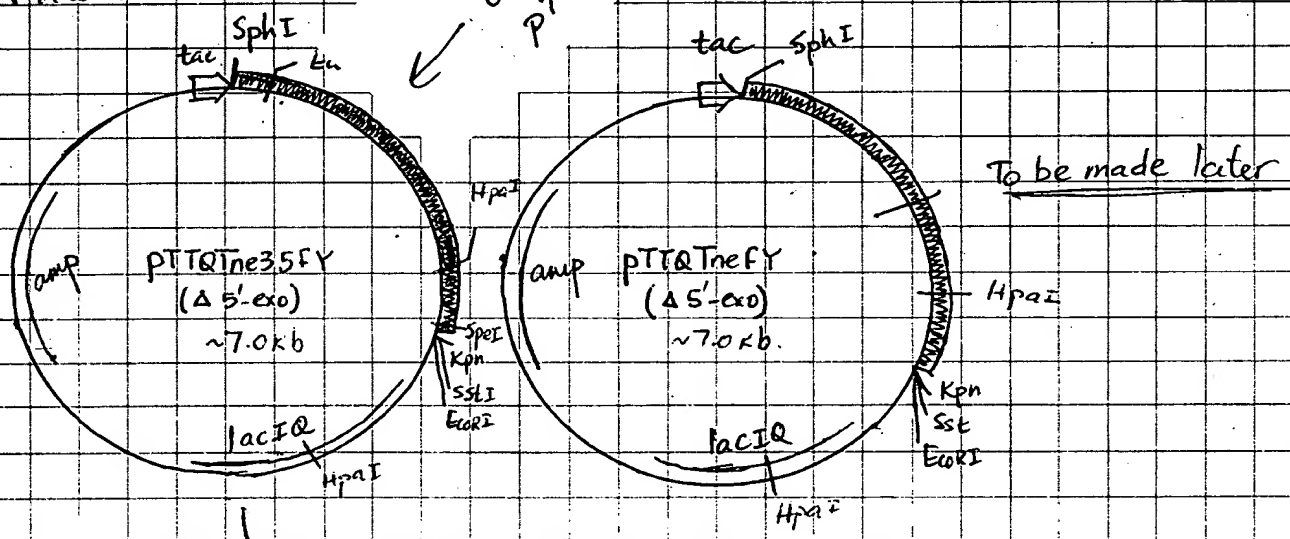 P
SphI
tac
HpaI
amp
pTTQTne35FY
(Δ 5'-exo)
~7.0 kb
SpeI
Kpn
SstI
EcoRI
lacIQ
HpaI
tac
SphI
To be made later
amp
pTTQTneFY
(Δ 5'-exo)
~7.0 kb.
HpaI
Kpn
Sst
EcoRI
lacIQ
HpaI